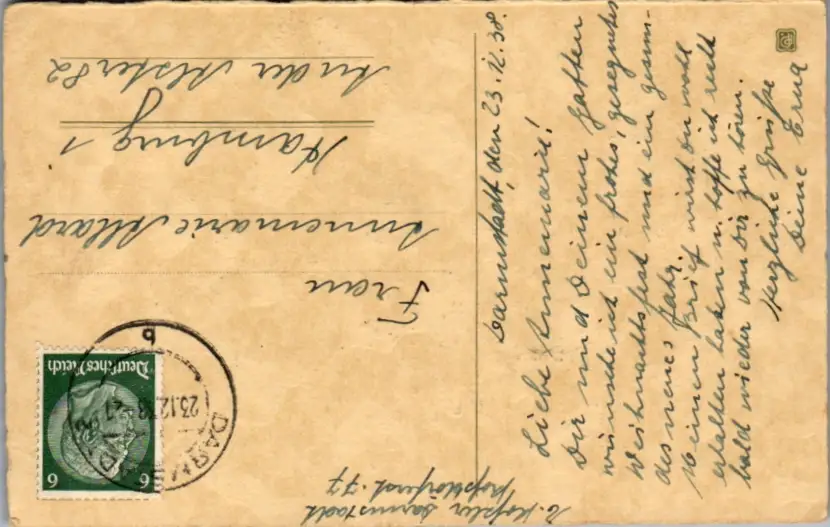 Darmstadt, den 23.12.38.
Liebe Annemarie!
Dir und Deinem Gatten
wünsche ich ein frohes, gesegnetes
Weihnachtsfest und ein gesun-
des neues Jahr.
Meinen Brief wirst Du wohl
erhalten haben u. hoffe ich recht
bald wieder von Dir zu hören.
Herzliche Grüße
Deine Erna
Frau
Annemarie Allard
Hamburg 1
An der Alster 82
Darmstadt
Deutsches Reich
6 6
DARMST
23.12.38
b